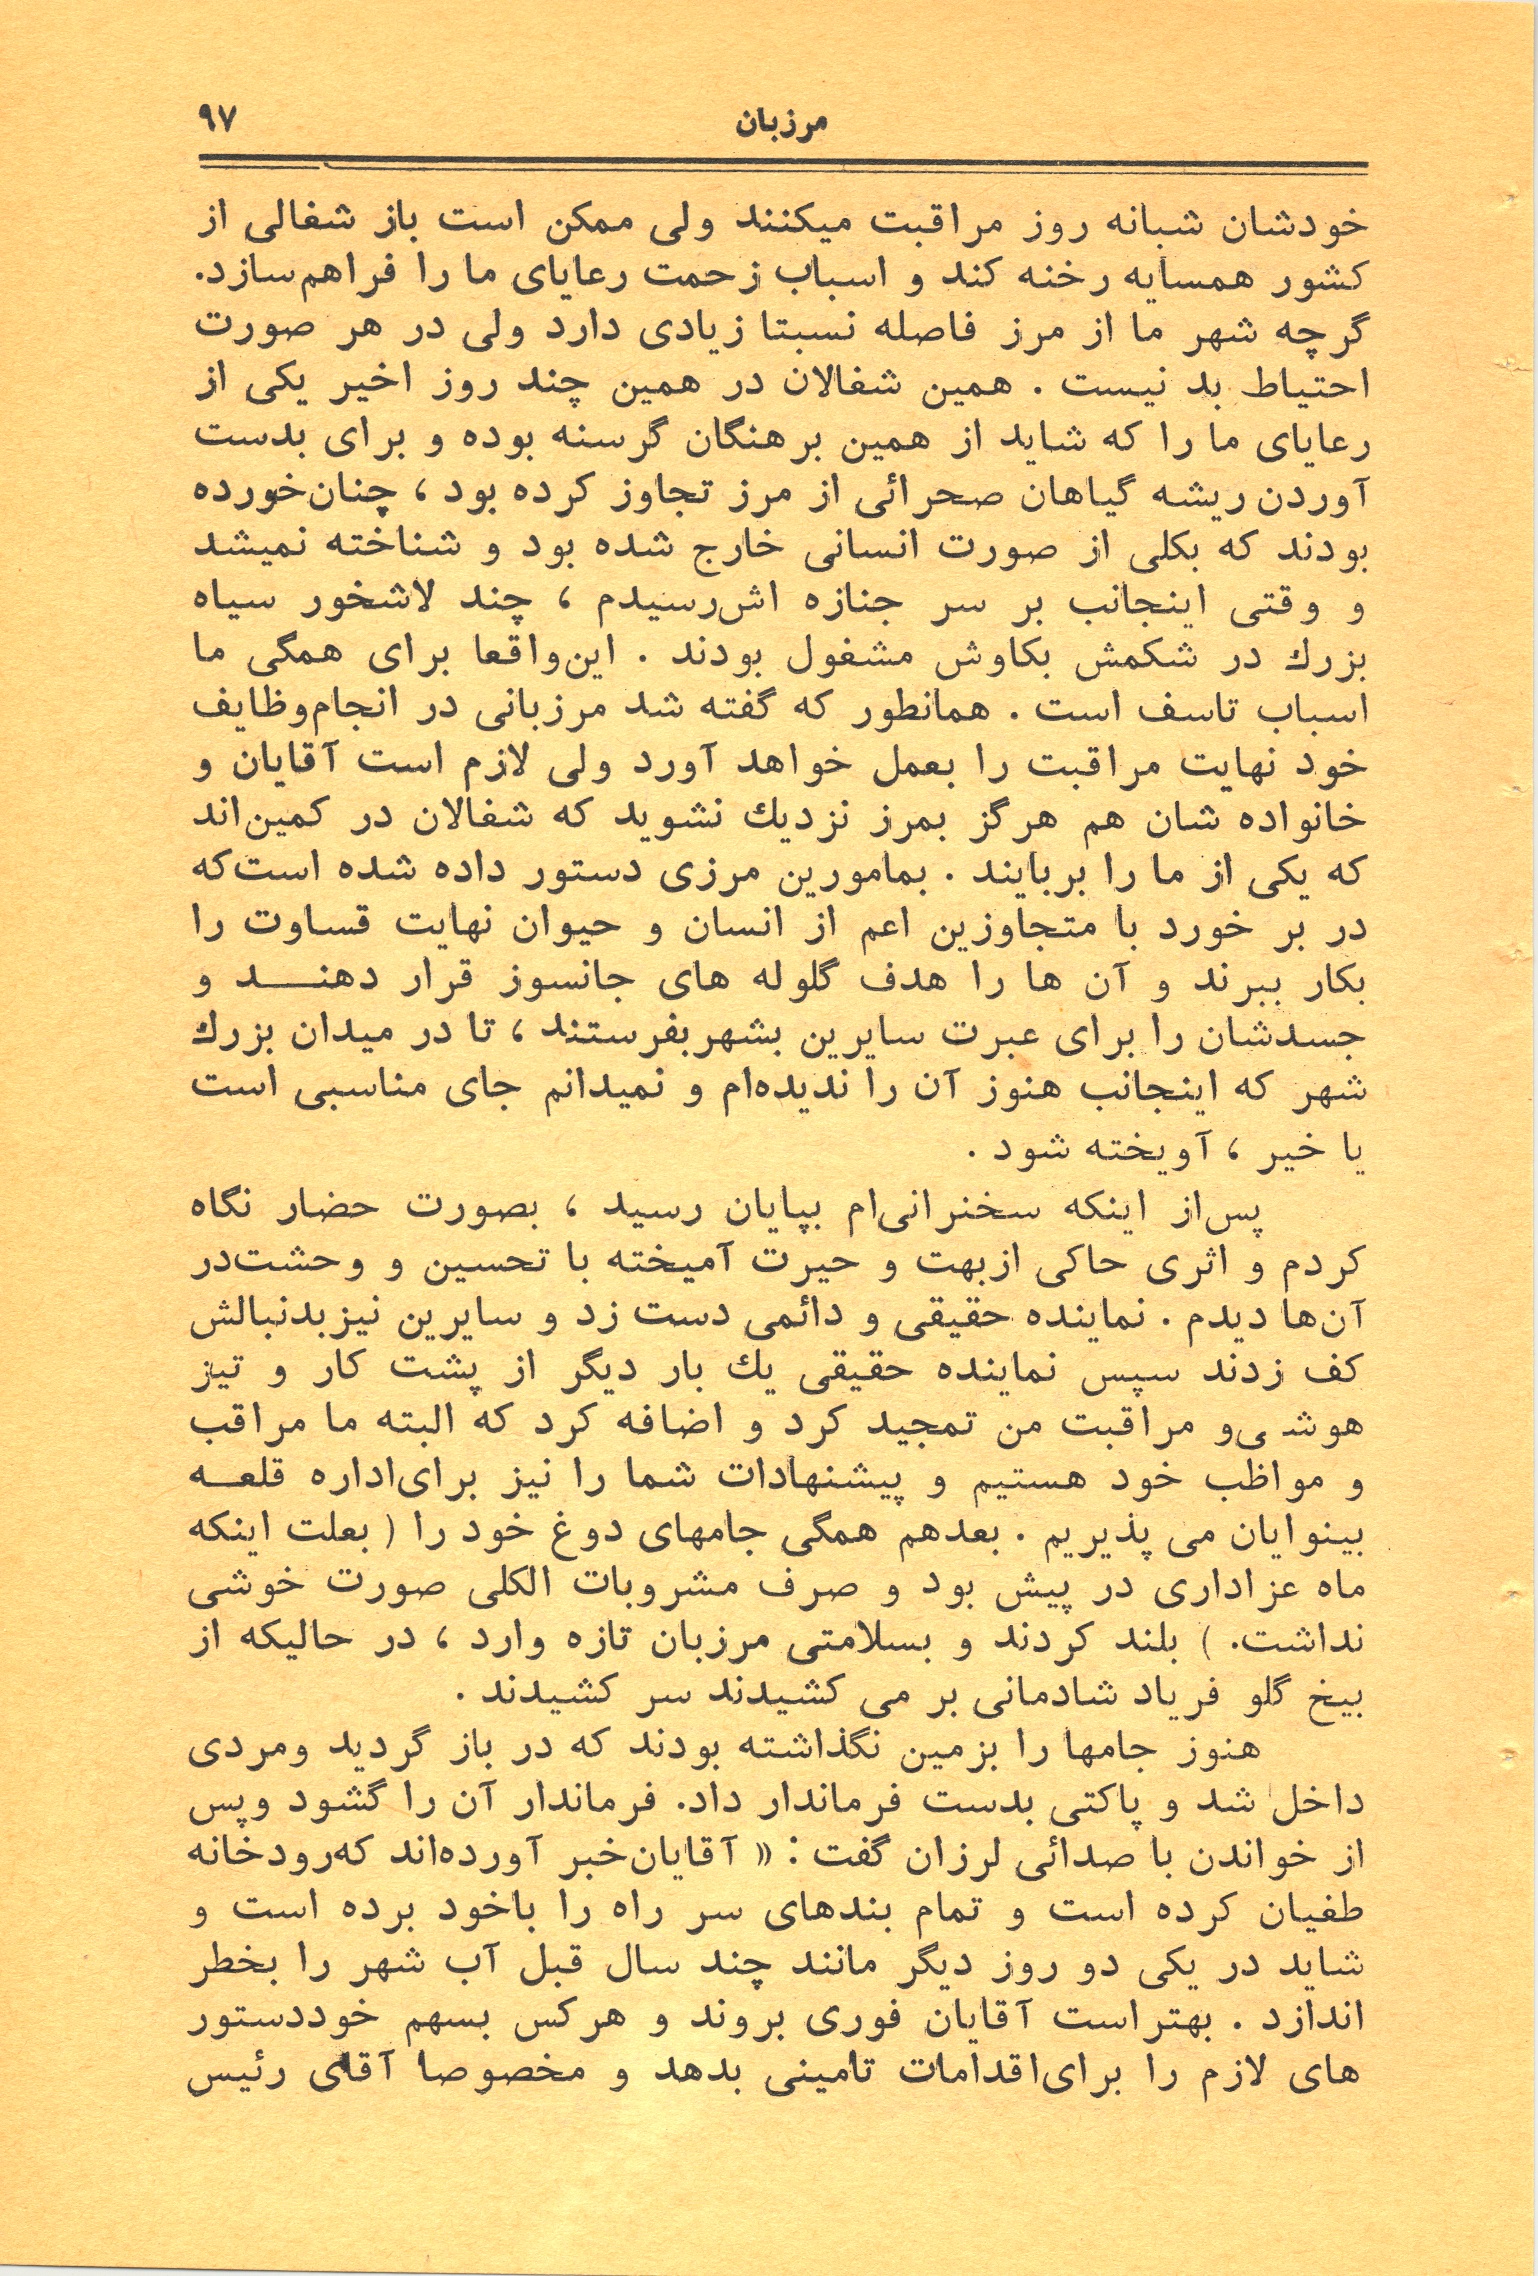 مرزبان
۹۷
خودشان شبانه روز مراقبت میکنند ولی ممکن است باز شغالی از
کشور همسایه رخنه کند و اسباب زحمت رعایای ما را فراهم‌سازد.
گرچه شهر ما از مرز فاصله نسبتا زیادی دارد ولی در هر صورت
احتیاط بد نیست . همین شغالان در همین چند روز اخیر یکی از
رعایای ما را که شاید از همین برهنگان گرسنه بوده و برای بدست
آوردن ریشه گیاهان صحرائی از مرز تجاوز کرده بود ، چنان‌خورده
بودند که بکلی از صورت انسانی خارج شده بود و شناخته نمیشد
و وقتی اینجانب بر سر جنازه اش‌رسیدم ، چند لاشخور سیاه
بزرك در شکمش بکاوش مشغول بودند . این‌واقعا برای همگی ما
اسباب تاسف است . همانطور که گفته شد مرزبانی در انجام‌وظایف
خود نهایت مراقبت را بعمل خواهد آورد ولی لازم است آقایان و
خانواده شان هم هرگز بمرز نزدیك نشوید که شغالان در کمین‌اند
که یکی از ما را بربایند . بمامورین مرزی دستور داده شده است‌که
در بر خورد با متجاوزین اعم از انسان و حیوان نهایت قساوت را
بکار ببرند و آن ها را هدف گلوله های جانسوز قرار دهنـــد و
جسدشان را برای عبرت سایرین بشهربفرستند ، تا در میدان بزرك
شهر که اینجانب هنوز آن را ندیده‌ام و نمیدانم جای مناسبی است
یا خیر ، آویخته شود .
پس‌از اینکه سخنرانی‌ام بپایان رسید ، بصورت حضار نگاه
کردم و اثری حاکی ازبهت و حیرت آمیخته با تحسین و وحشت‌در
آن‌ها دیدم . نماینده حقیقی و دائمی دست زد و سایرین نیزبدنبالش
کف زدند سپس نماینده حقیقی یك بار دیگر از پشت کار و تیز
هوشی‌و مراقبت من تمجید کرد و اضافه کرد که البته ما مراقب
و مواظب خود هستیم و پیشنهادات شما را نیز برای‌اداره قلعـه
بینوایان می پذیریم . بعدهم همگی جامهای دوغ خود را ( بعلت اینکه
ماه عزاداری در پیش بود و صرف مشروبات الکلی صورت خوشی
نداشت. ) بلند کردند و بسلامتی مرزبان تازه وارد ، در حالیکه از
بیخ گلو فریاد شادمانی بر می کشیدند سر کشیدند .
هنوز جامها را بزمین نگذاشته بودند که در باز گردید ومردی
داخل شد و پاکتی بدست فرماندار داد. فرماندار آن را گشود وپس
از خواندن با صدائی لرزان گفت : « آقایان‌خبر آورده‌اند که‌رودخانه
طغیان کرده است و تمام بندهای سر راه را باخود برده است و
شاید در یکی دو روز دیگر مانند چند سال قبل آب شهر را بخطر
اندازد . بهتراست آقایان فوری بروند و هرکس بسهم خوددستور
های لازم را برای‌اقدامات تامینی بدهد و مخصوصا آقای رئیس